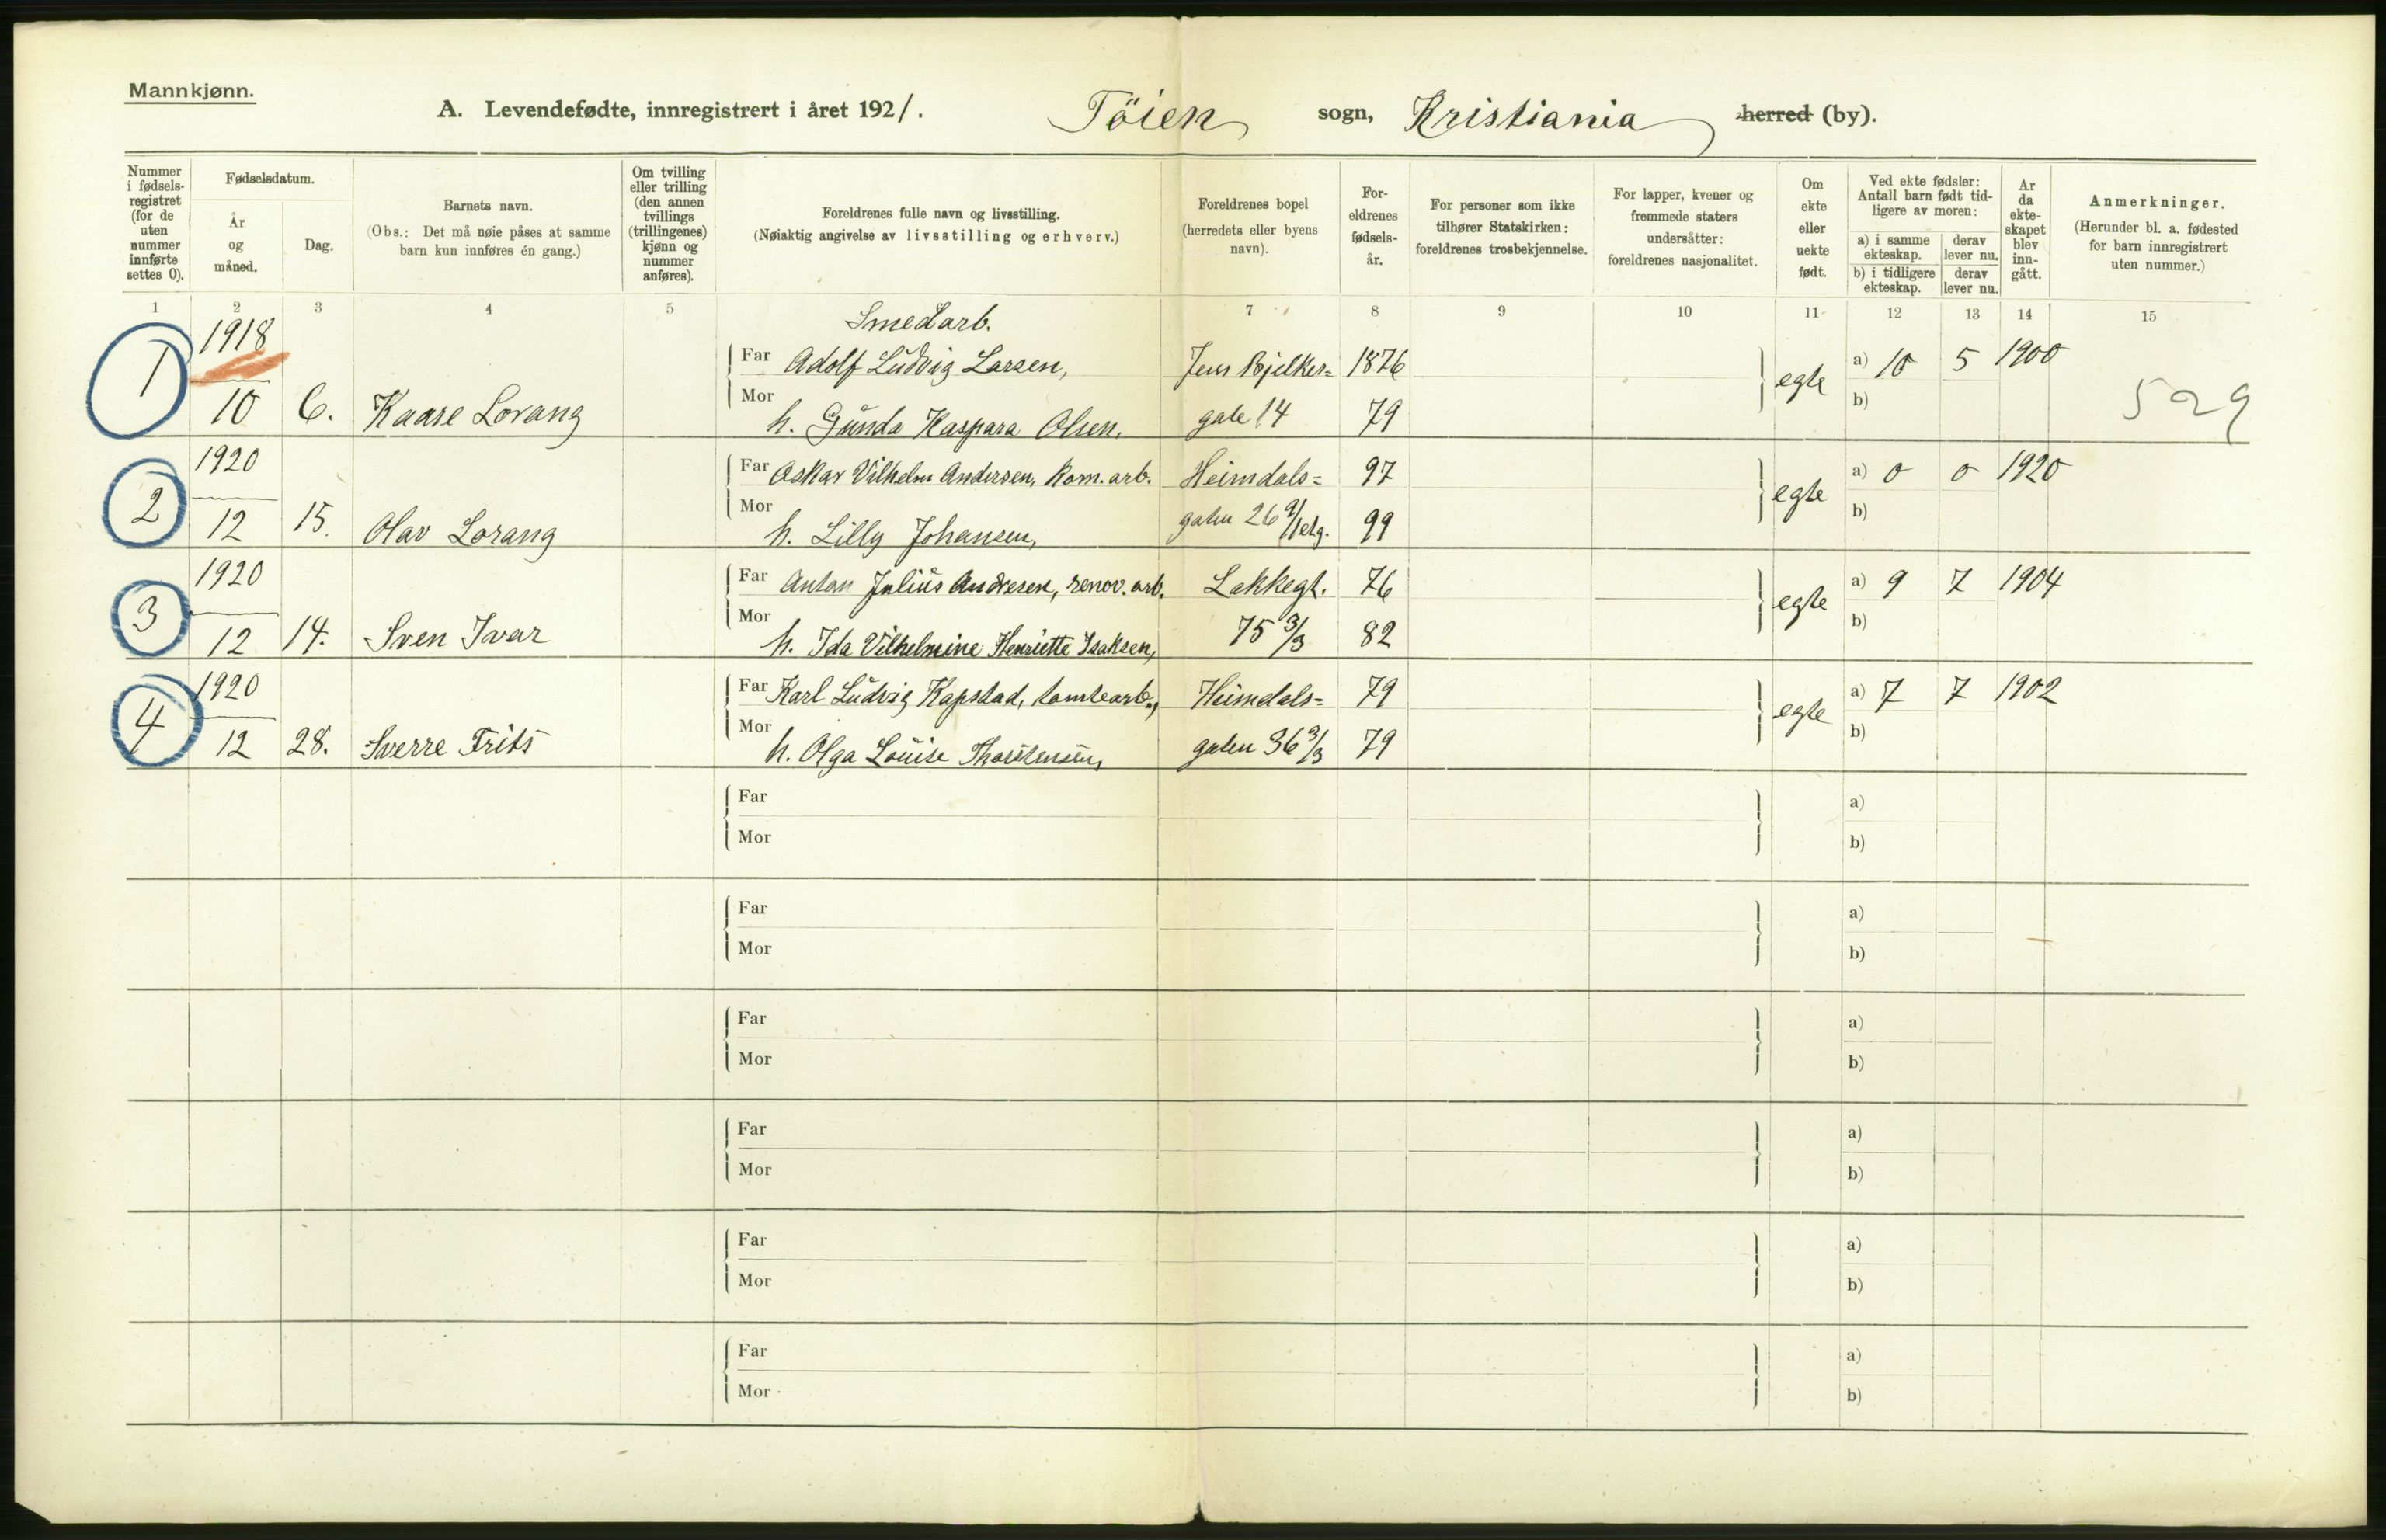 Mannkjønn.
A. Levendefødte, innregistrert i året 1921. Töien sogn, Kristiania herred (by).
Nummer i fødselsregistret (for de uten nummer innførte settes 0).
Fødselsdatum.
År og måned.
Dag.
Barnets navn.
(Obs.: Det må nøie påses at samme barn kun innføres én gang.)
Om tvilling eller trilling (den annen tvillings (trillingenes) kjønn og nummer anføres).
Foreldrenes fulle navn og livsstilling.
(Nøiaktig angivelse av livsstilling og erhverv.)
Foreldrenes bopel
(herredets eller byens navn).
Foreldrenes fødselsår.
For personer som ikke tilhører Statskirken: foreldrenes trosbekjennelse.
For lapper, kvener og fremmede staters undersåtter: foreldrenes nasjonalitet.
Om ekte eller uekte født.
Ved ekte fødsler: Antall barn født tidligere av moren:
a) i samme ekteskap.
derav lever nu.
b) i tidligere ekteskap.
derav lever nu.
År da ekteskapet blev inngått.
Anmerkninger.
(Herunder bl. a. fødested for barn innregistrert uten nummer.)
1 2 3 4 5 6 7 8 9 10 11 12 13 14 15
Smedarb.
1 1918 Far Adolf Ludvig Larsen, Jens Bjelkes= 1876 egte a) 10 5 1900
10 6. Kaare Lorang Mor h. Gunda Kaspara Olsen, gate 14 79 b) 529
2 1920 Far Oskar Vilhelm Andersen, kom. arb. Heimdals= 97 egte a) 0 0 1920
12 15. Olav Lorang Mor h. Lilly Johansen, gaten 26 99 b)
3 1920 Far Anton Julius Andresen, renov. arb. Lakkegt. 76 egte a) 9 7 1904
12 14. Sven Ivar Mor h. Ida Vilhelmine Henriette Isaksen, 75 3/3 82 b)
4 1920 Far Karl Ludvig Kapstad, tomtearb., Heimdals= 79 egte a) 7 7 1902
12 28. Sverre Frits Mor h. Olga Louise Thorstensen, gaten 36 3/3 79 b)
Far a)
Mor b)
Far a)
Mor b)
Far a)
Mor b)
Far a)
Mor b)
Far a)
Mor b)
Far a)
Mor b)